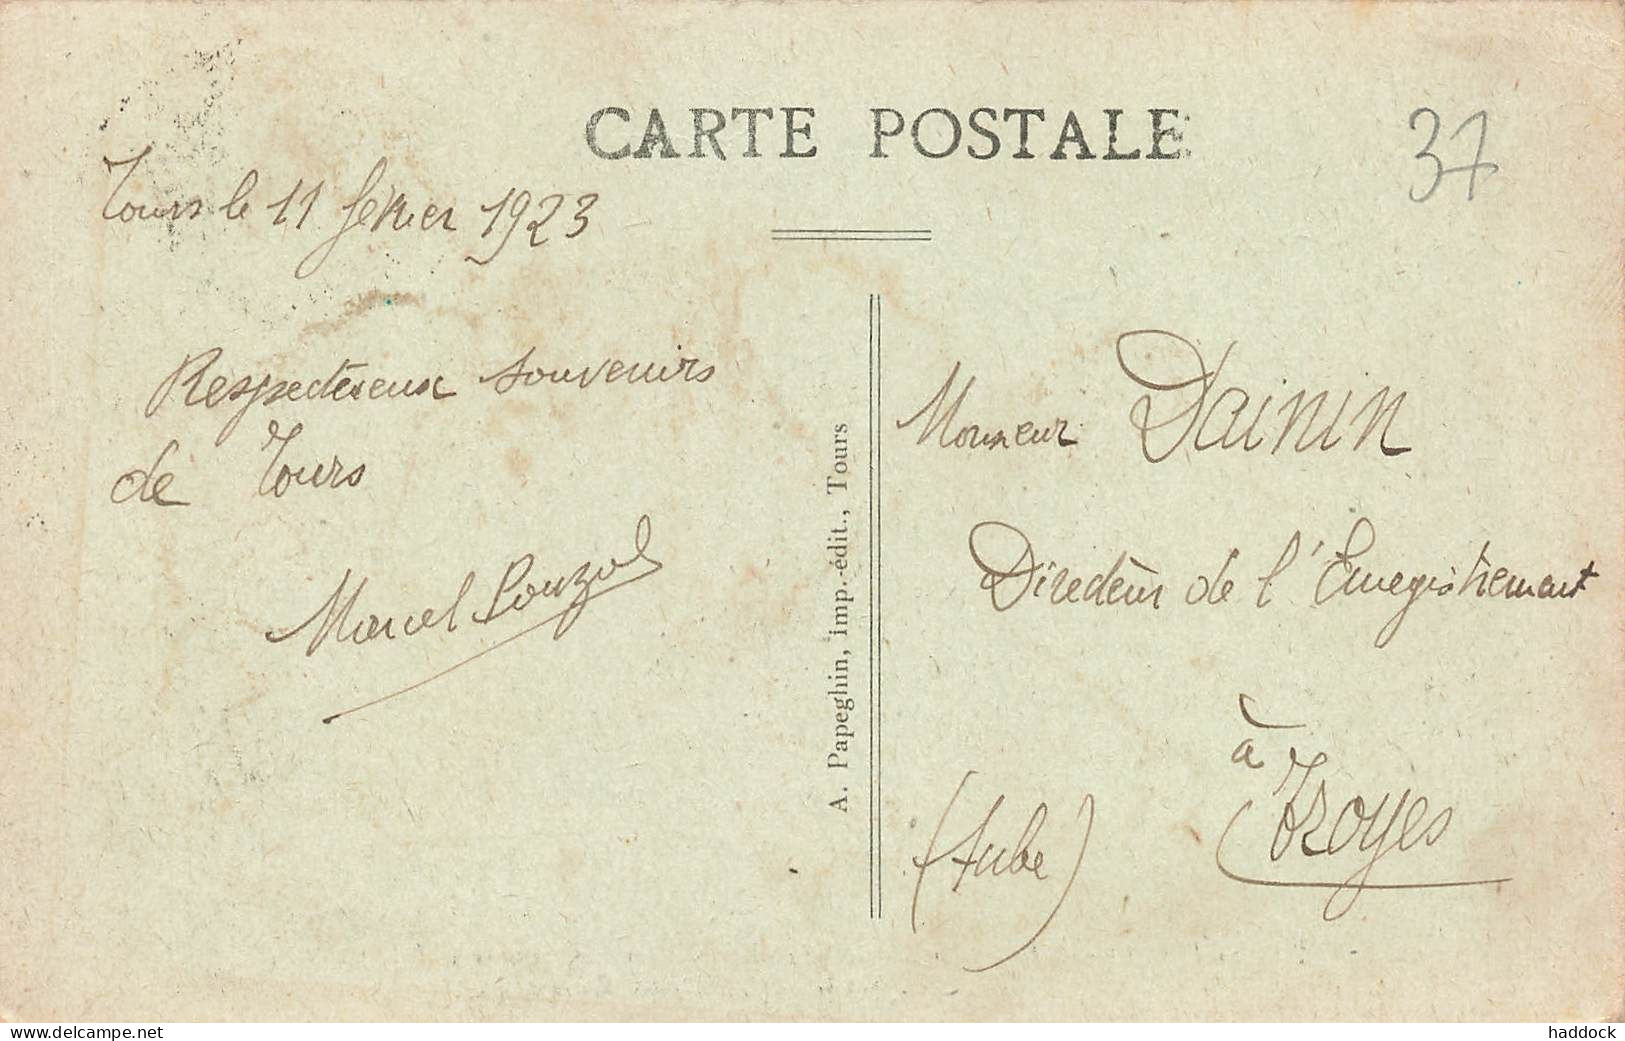 CARTE POSTALE
37
Tours le 11 février 1923
Respectueux souvenirs
de Tours
Marcel
A. Papeghin, imp.-édit., Tours
Monsieur Dainin
Directeur de l'Enregistrement
à
Troyes
(Aube)
www.delcampe.net
haddock